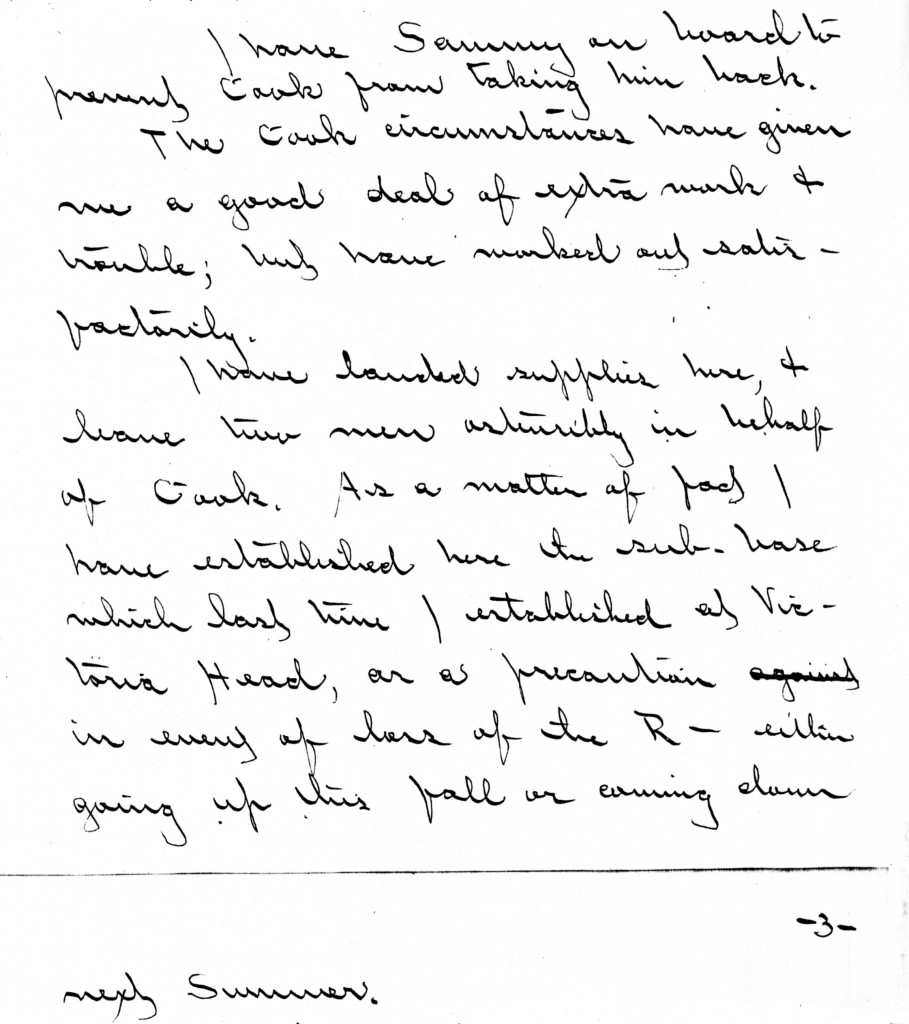 I have Sammy on board to
prevent Cook from taking him back.
The Cook circumstances have given
me a good deal of extra work &
trouble; but have worked out satis-
factorily.
I have landed supplies here, &
leave two men ostensibly in behalf
of Cook. As a matter of fact I
have established here the sub-base
which last time I established at Vic-
toria Head, as a precaution against
in event of loss of the R— either
going up this fall or coming down
-3-
next Summer.